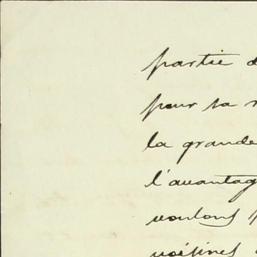 partie d
pour sa r
la grande
l'avantag
voulons p
voisines